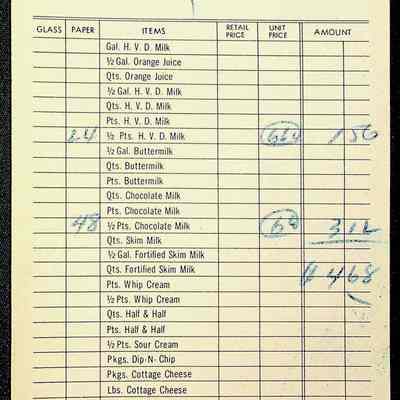 GLASS PAPER ITEMS RETAIL PRICE UNIT PRICE AMOUNT
Gal. H. V. D. Milk
½ Gal. Orange Juice
Qts. Orange Juice
½ Gal. H. V. D. Milk
Qts. H. V. D. Milk
Pts. H. V. D. Milk
24 ½ Pts. H. V. D. Milk 156
½ Gal. Buttermilk
Qts. Buttermilk
Pts. Buttermilk
Qts. Chocolate Milk
Pts. Chocolate Milk
48 ½ Pts. Chocolate Milk 312
Qts. Skim Milk
½ Gal. Fortified Skim Milk
Qts. Fortified Skim Milk $468
Pts. Whip Cream
½ Pts. Whip Cream
Qts. Half & Half
Pts. Half & Half
½ Pts. Sour Cream
Pkgs. Dip-N-Chip
Pkgs. Cottage Cheese
Lbs. Cottage Cheese